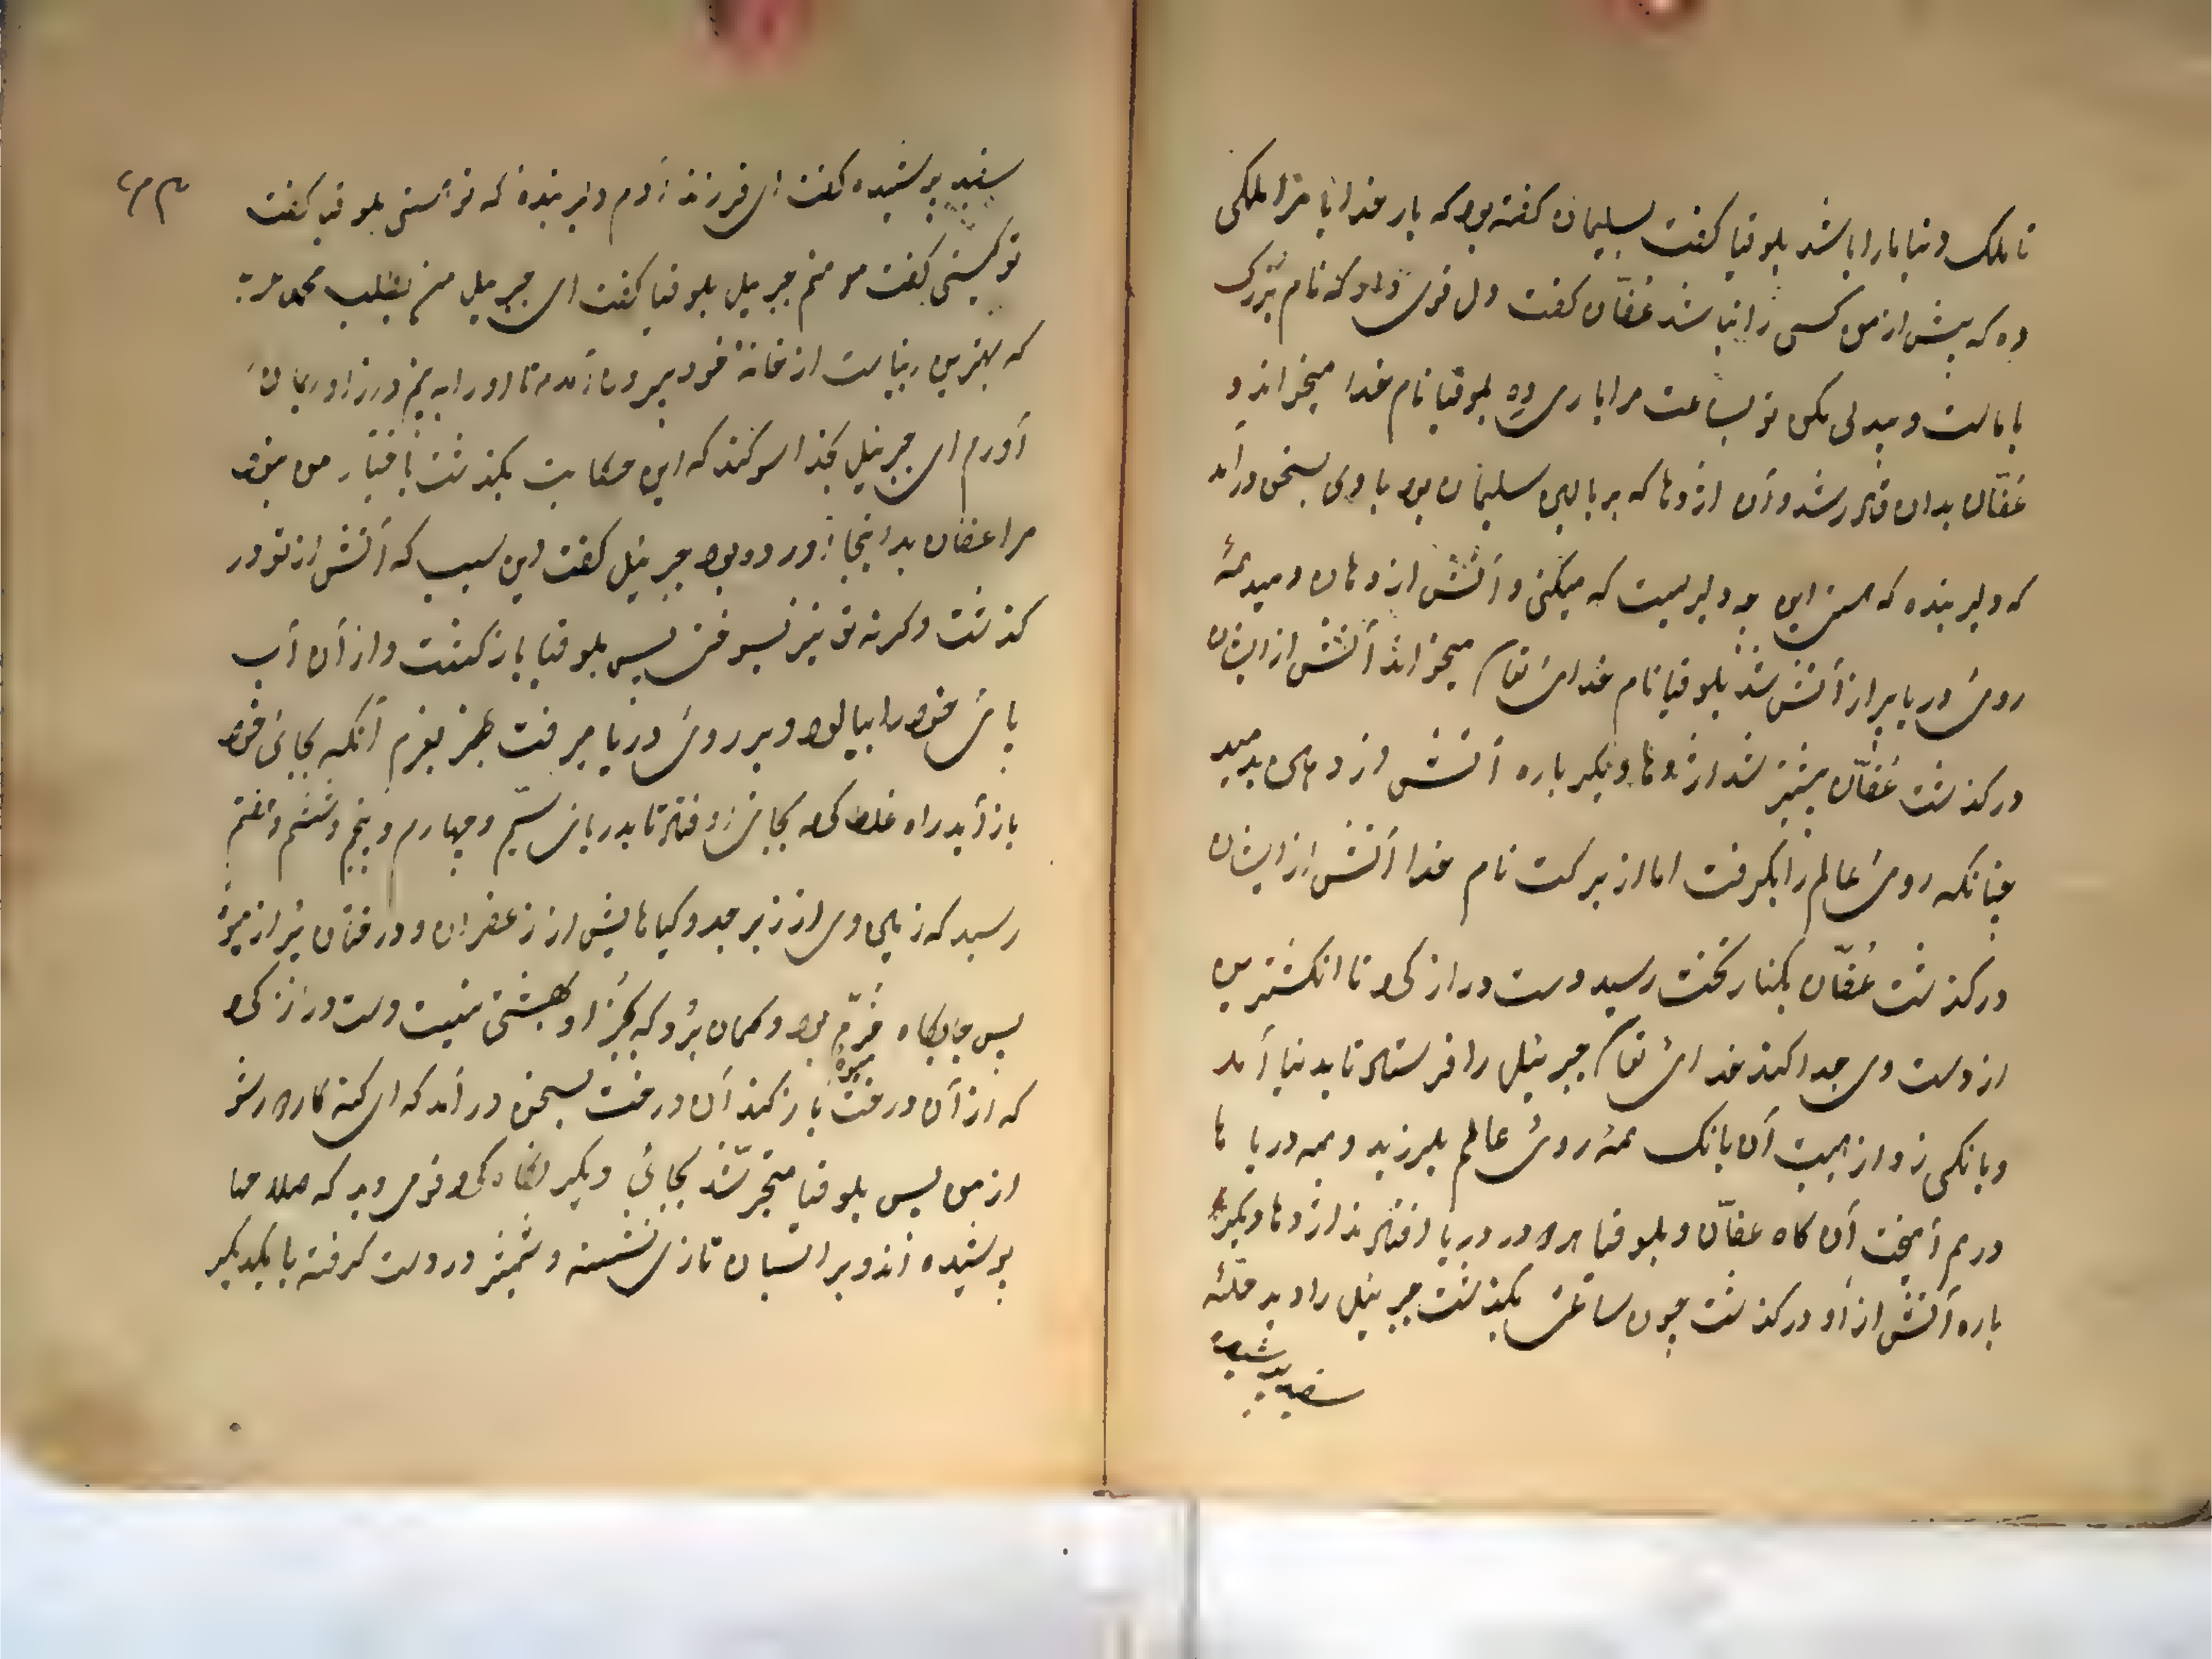 تا ملک دنیا ما را باشد بلوقیا گفت سلیمان گفته بود که بار خدایا مرا ملکی
ده که پیش از من کسی را نباشد عفّان گفت دل قوی دار که نام بزرگ
با ماست و بیدلی مکن تو بساعت مرا یاری ده بلوقیا نام خدا میخواند و
عفّان بدان قادر شد و آن اژدها که بر بالین سلیمان بود با وی بسخن درآمد
که دلیر بنده که این چه دلیریست که میکنی و آتش از دهان دمید همهٔ
روی دریا پر از آتش شد بلوقیا نام خدای تعالی میخواند آتش از ایشان
درگذشت عفّان پیشتر شد اژدها دیگرباره آتش از دهان بدمید
چنانکه روی عالم را بگرفت اما از برکت نام خدا آتش از ایشان
درگذشت عفّان بکنار تخت رسید دست دراز کرد تا انگشترین
از دست وی جدا کند خدای تعالی جبرئیل را فرستاد تا بدنیا آمد
و بانگی زد از هیبت آن بانگ همهٔ روی عالم بلرزید و همه دریا ها
در هم آمیخت آن گاه عفّان و بلوقیا هردو در دریا افتادند اژدها دیگر
باره آتش از او درگذشت چون ساعتی بگذشت جبرئیل را دید
سفید پوشیده
سفید پوشیده گفت ای فرزند آدم دلیر بندهٔ که توئستی بلوقیا گفت
تو کیستی گفت منم جبرییل بلوقیا گفت ای جبرییل من بطلب محمد
که بهترین است از خانهٔ خود بیرون آمدم تا او را به بینم و بر او ایمان
آورم ای جبرئیل بخدا سوگند که این حکایت بگذشت باختیار من نبود
مرا عفان بداینجا آورده بود جبرئیل گفت این سبب که آتش از تو در
گذشت وگرنه تو نیز بسوختی پس بلوقیا بازگشت و از آن آب
پای خود را بیالود و بر روی دریا میرفت بعزم آنکه بجای خود
باز آید راه غلط کرد بجای افتاد تا بدریای سیّم و چهارم و پنجم و ششم و هفتم
رسید که زمین وی از زبرجد و گیاهایش از زعفران و درختان پر از میوه
پس جایگاه خرّم بود و گمان برد که بجز او بهشتی نیست دست دراز کرد
که از آن درخت میوه باز کند آن درخت بسخن درآمد که ای گنه کار دور شو
از من پس بلوقیا متحیّر شد بجائی دیگر نگاه کرد قومی دید که سلاحها
پوشیده اند و بر اسبان تازی نشسته و شمشیر در دست گرفته با یکدیگر